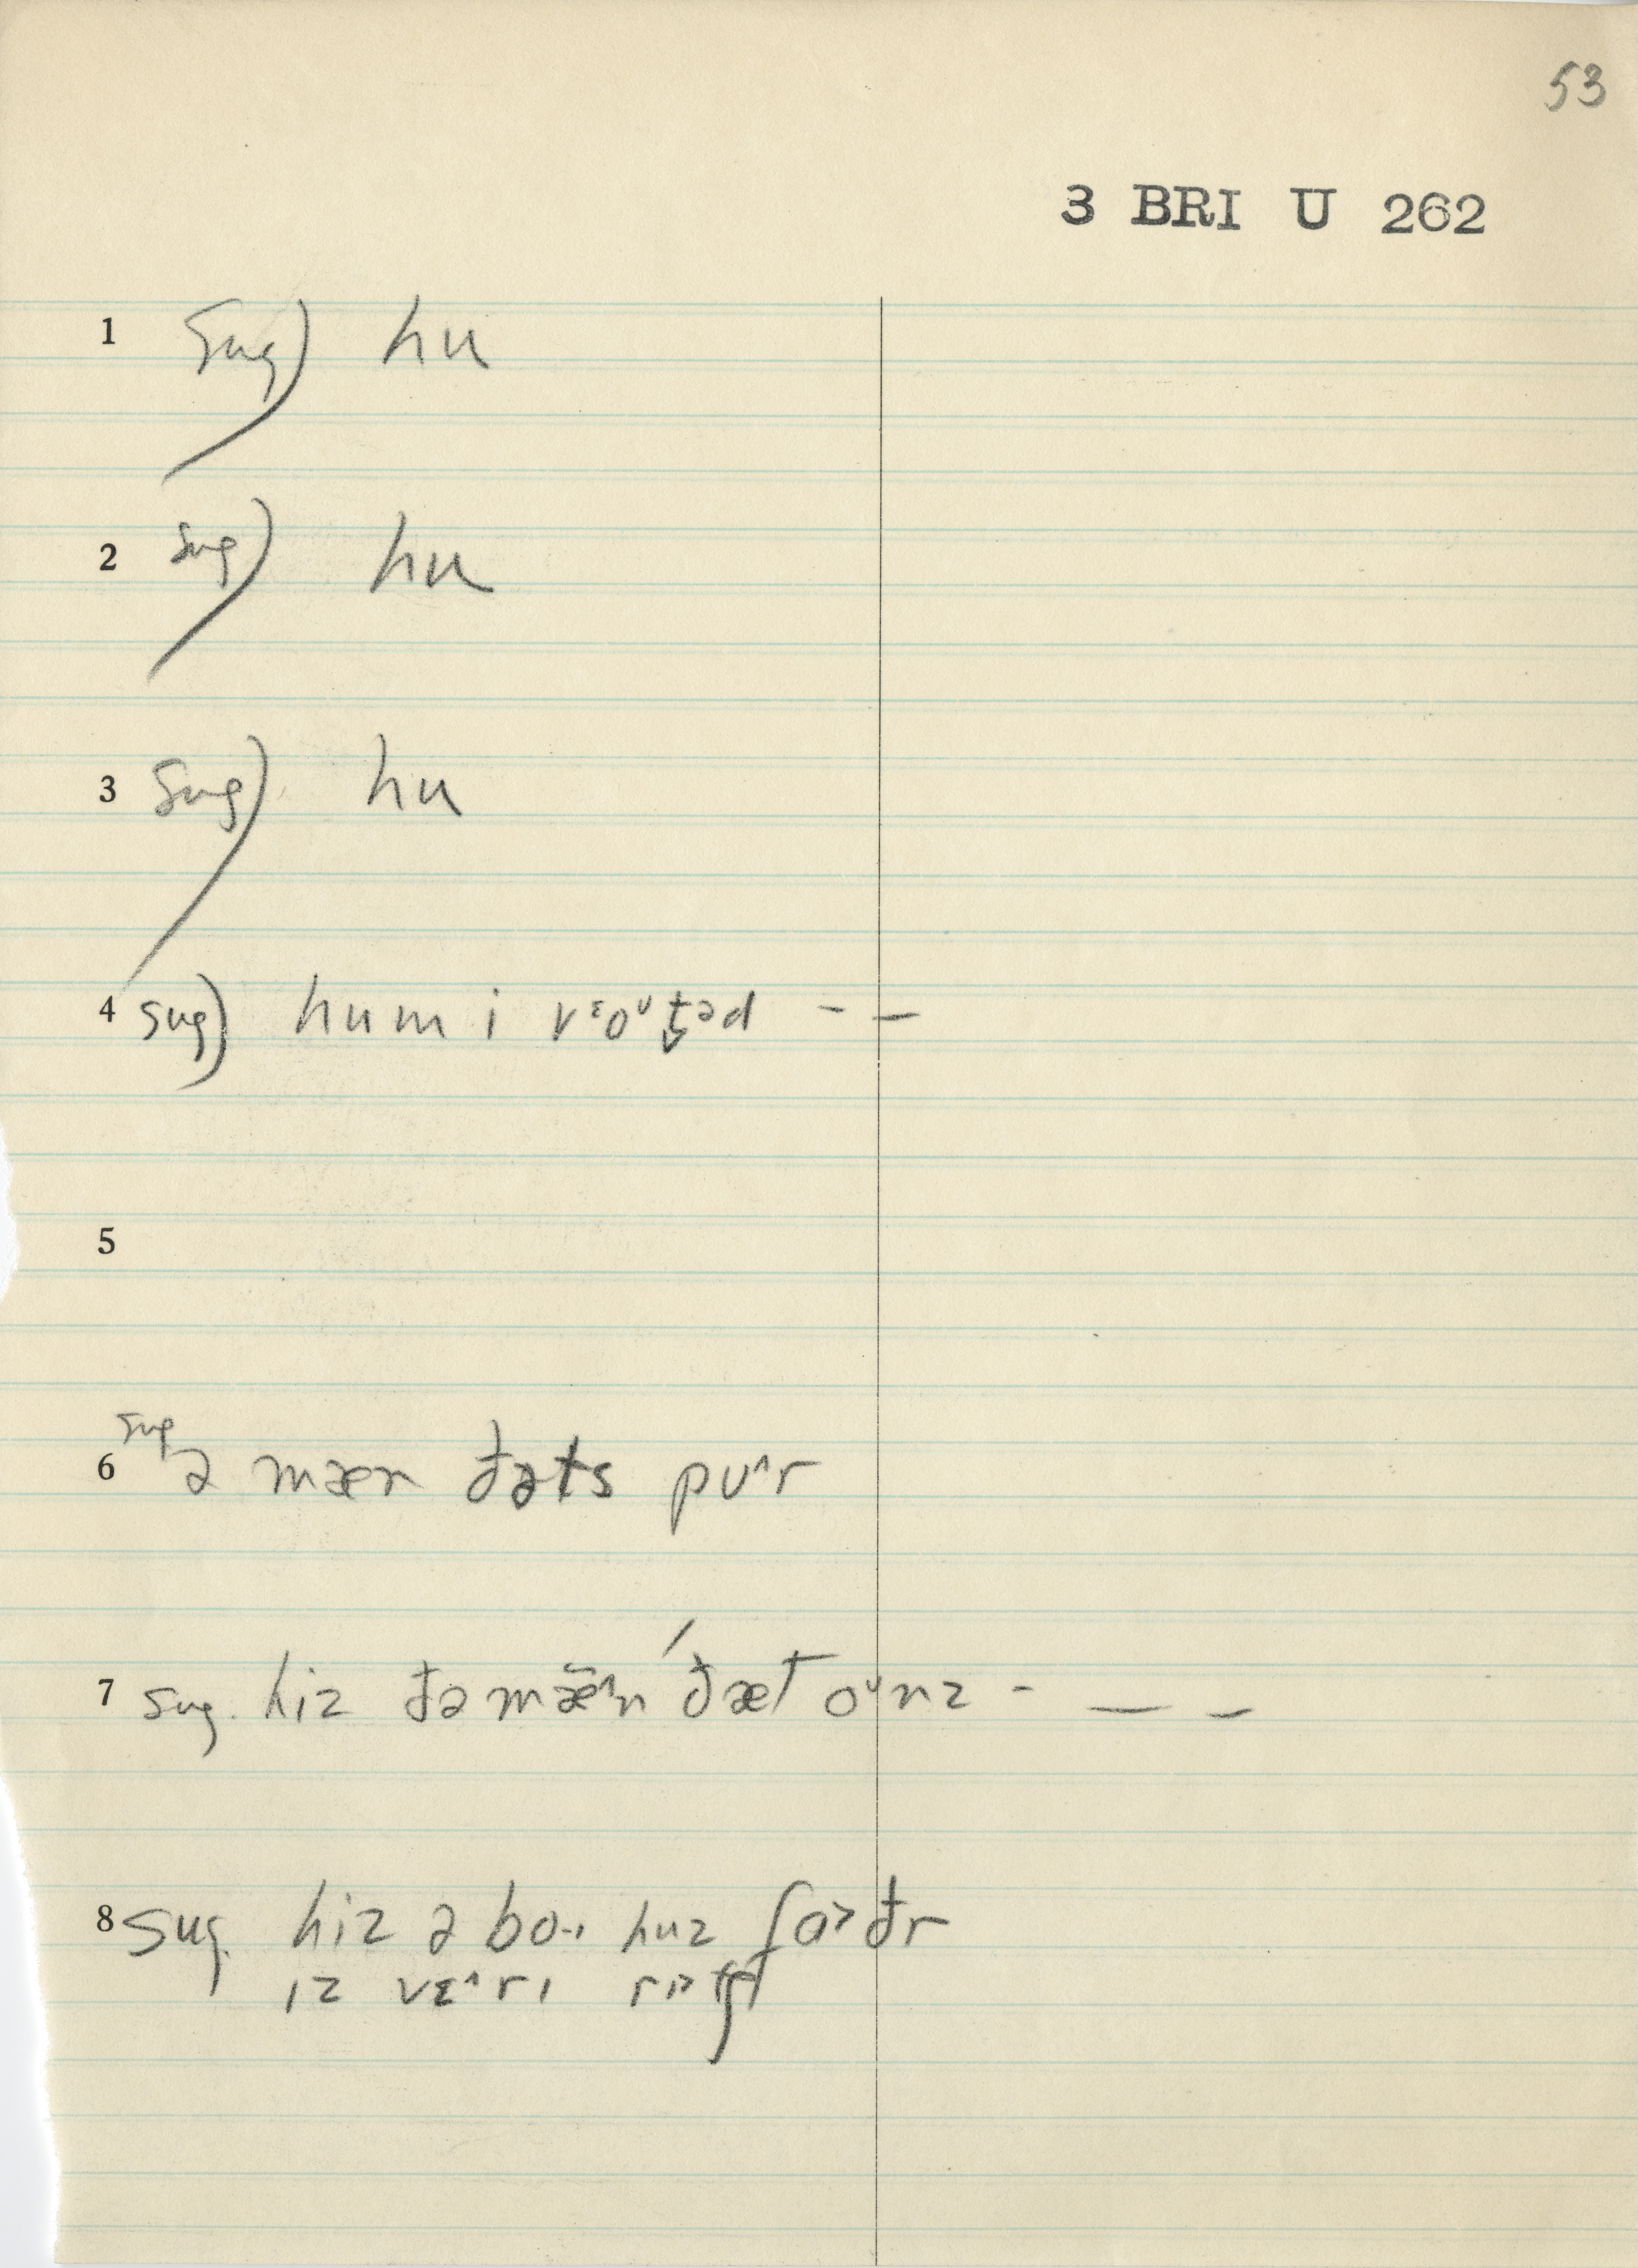 53
3 BRI U 262
1 sug) hu
2 sug) hu
3 sug) hu
4 sug) hum i vᵋoᶸt̬əd – –
5
6 sug ə mæn đəts pu^r
7 sug. hiz đə mæ̃^n ˊđæt oᶸnz - — –
8 sug. hiz ə bo·ɪ huz fɑ>đr
ɪz vɛ^rɪ